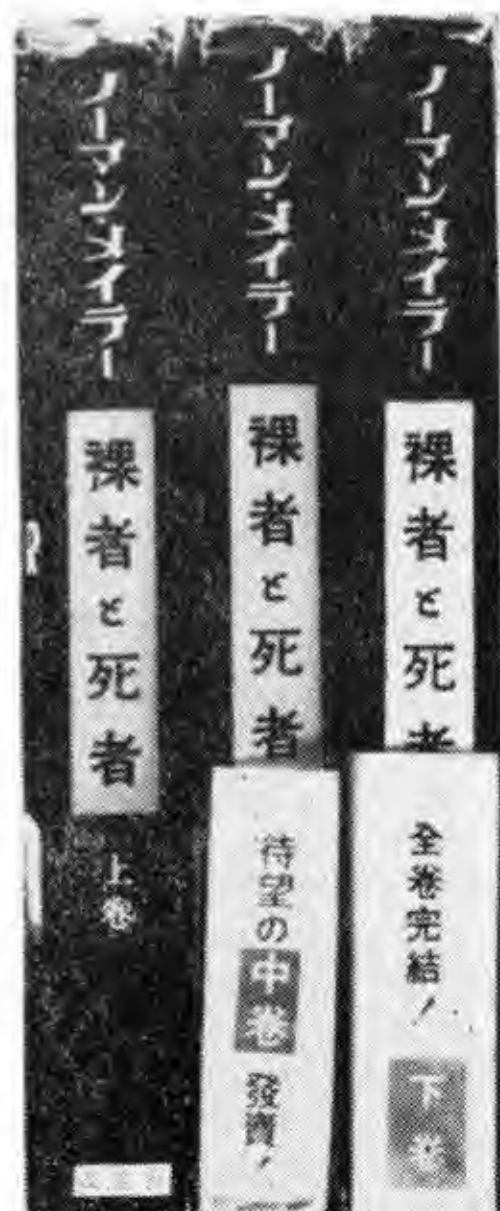 ノーマン・メイラー
裸者と死者
上巻
ノーマン・メイラー
裸者と死者
待望の中巻発賣！
ノーマン・メイラー
裸者と死者
全巻完結！
下巻